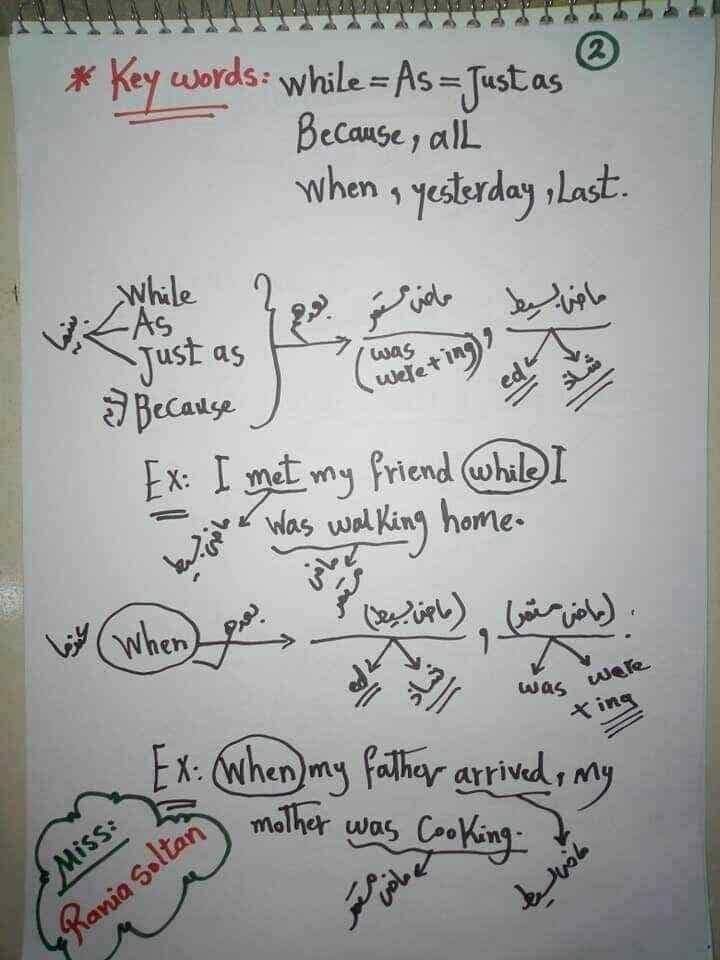 2
* Key words: while = As = Just as
Because, all
When, yesterday, Last.
بينما
While
As
Just as
Because
بعدهم
ماضى مستمر
,
ماضى بسيط
(was
were + ing)
ed
شاذ
Ex: I met my friend while I
was walking home.
ماضى بسيط
ماضى مستمر
عندما
When
(ماضى بسيط)
,
(ماضى مستمر).
ed
شاذ
was were
+ ing
Ex: When my father arrived, my
mother was Cooking.
ماضى مستمر
ماضى بسيط
Miss:
Rania Soltan